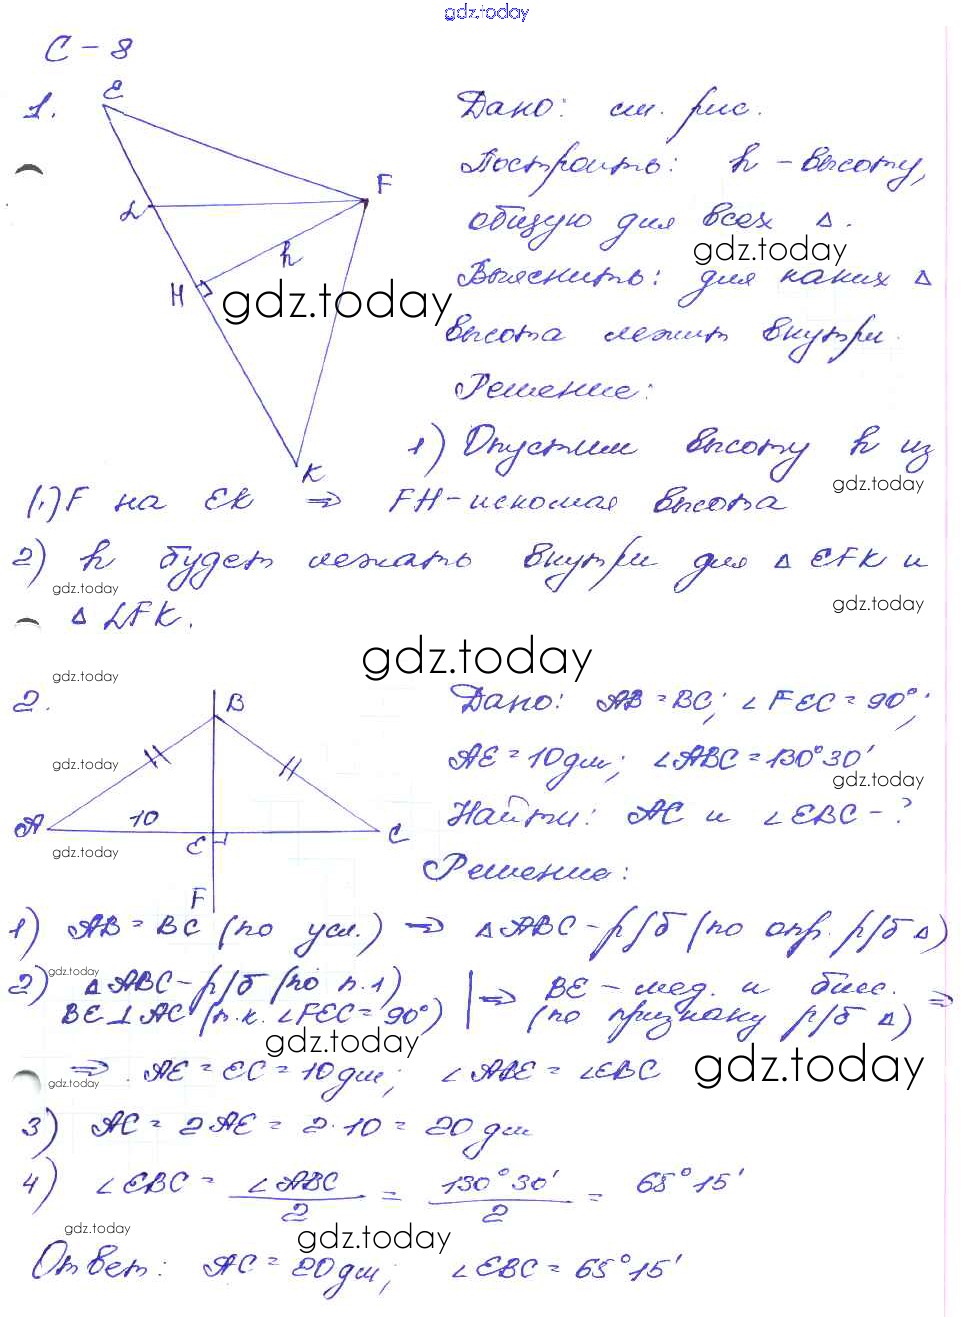 gdz.today
С - 8
1.
E
F
L
H
h
K
Дано: см. рис.
Построить: h - высоту,
общую для всех Δ.
gdz.today
Выяснить: для каких Δ
gdz.today
высота лежит внутри.
Решение:
1) Опустим высоту h из
gdz.today
(·)F на EK ⇒ FH - искомая высота
2) h будет лежать внутри для Δ EFK и
gdz.today
gdz.today
Δ LFK.
gdz.today
gdz.today
2.
B
A
10
E
C
F
Дано: AB = BC; ∠FEC = 90°;
AE = 10 дм; ∠ABC = 130°30'
gdz.today
gdz.today
Найти: AC и ∠EBC - ?
gdz.today
Решение:
1) AB = BC (по усл.) ⇒ Δ ABC - р/б (по опр. р/б Δ)
gdz.today
2) Δ ABC - р/б (по п.1) | ⇒ BE - мед. и бисс. ⇒
BE ⊥ AC (т.к. ∠FEC = 90°) (по признаку р/б Δ)
gdz.today
⇒ AE = EC = 10 дм; ∠ABE = ∠EBC
gdz.today
gdz.today
3) AC = 2AE = 2·10 = 20 дм
4) ∠EBC = ∠ABC / 2 = 130°30' / 2 = 65°15'
gdz.today
gdz.today
Ответ: AC = 20 дм; ∠EBC = 65°15'